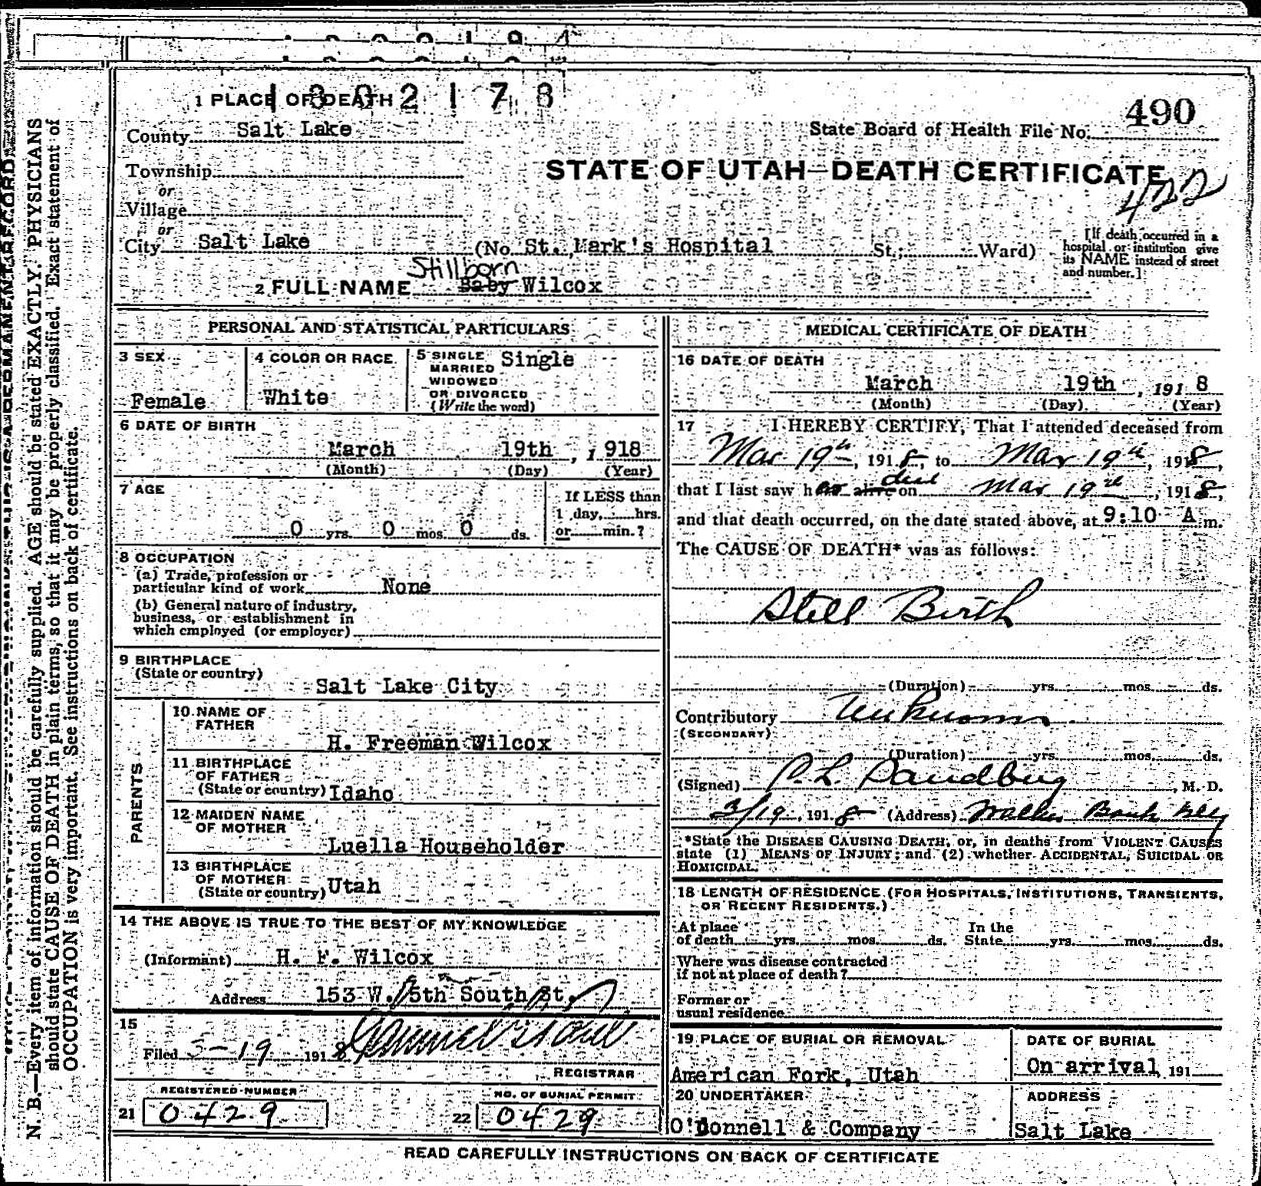 1302178
1 PLACE OF DEATH
County Salt Lake
State Board of Health File No. 490
Township
or
Village
or
STATE OF UTAH—DEATH CERTIFICATE
422
City Salt Lake (No. St. Mark's Hospital St.; Ward)
[If death occurred in a
hospital or institution give
its NAME instead of street
and number.]
Stillborn
2 FULL NAME Baby Wilcox
PERSONAL AND STATISTICAL PARTICULARS
3 SEX
Female
4 COLOR OR RACE
White
5 SINGLE Single
MARRIED
WIDOWED
OR DIVORCED
(Write the word)
6 DATE OF BIRTH
March 19th, 1918
(Month) (Day) (Year)
7 AGE
0 yrs. 0 mos. 0 ds.
If LESS than
1 day, hrs.
or min.?
8 OCCUPATION
(a) Trade, profession or
particular kind of work None
(b) General nature of industry,
business, or establishment in
which employed (or employer)
9 BIRTHPLACE
(State or country)
Salt Lake City
PARENTS
10 NAME OF
FATHER
H. Freeman Wilcox
11 BIRTHPLACE
OF FATHER
(State or country) Idaho
12 MAIDEN NAME
OF MOTHER
Luella Householder
13 BIRTHPLACE
OF MOTHER
(State or country) Utah
14 THE ABOVE IS TRUE TO THE BEST OF MY KNOWLEDGE
(Informant) H. F. Wilcox
Address 153 W. 5th South St.
15
Filed 3-19 1918
REGISTRAR
REGISTERED NUMBER
21 0429
NO. OF BURIAL PERMIT
22 0429
MEDICAL CERTIFICATE OF DEATH
16 DATE OF DEATH
March 19th, 1918
(Month) (Day) (Year)
17 I HEREBY CERTIFY, That I attended deceased from
Mar 19th, 1918, to Mar 19th, 1918,
that I last saw her alive dead on Mar 19th, 1918,
and that death occurred, on the date stated above, at 9:10 A m.
The CAUSE OF DEATH* was as follows:
Still Birth
(Duration) yrs. mos. ds.
Contributory Unknown
(SECONDARY)
(Duration) yrs. mos. ds.
(Signed) Sandberg, M. D.
3/19, 1918 (Address) Walker Bank Bldg
*State the DISEASE CAUSING DEATH, or, in deaths from VIOLENT CAUSES
state (1) MEANS OF INJURY; and (2) whether ACCIDENTAL, SUICIDAL OR
HOMICIDAL.
18 LENGTH OF RESIDENCE (FOR HOSPITALS, INSTITUTIONS, TRANSIENTS,
OR RECENT RESIDENTS.)
At place In the
of death yrs. mos. ds. State yrs. mos. ds.
Where was disease contracted
if not at place of death?
Former or
usual residence
19 PLACE OF BURIAL OR REMOVAL
American Fork, Utah
DATE OF BURIAL
On arrival, 191
20 UNDERTAKER
O'Donnell & Company
ADDRESS
Salt Lake
READ CAREFULLY INSTRUCTIONS ON BACK OF CERTIFICATE
N. B.—Every item of information should be carefully supplied. AGE should be stated EXACTLY. PHYSICIANS
should state CAUSE OF DEATH in plain terms, so that it may be properly classified. Exact statement of
OCCUPATION is very important. See instructions on back of certificate.